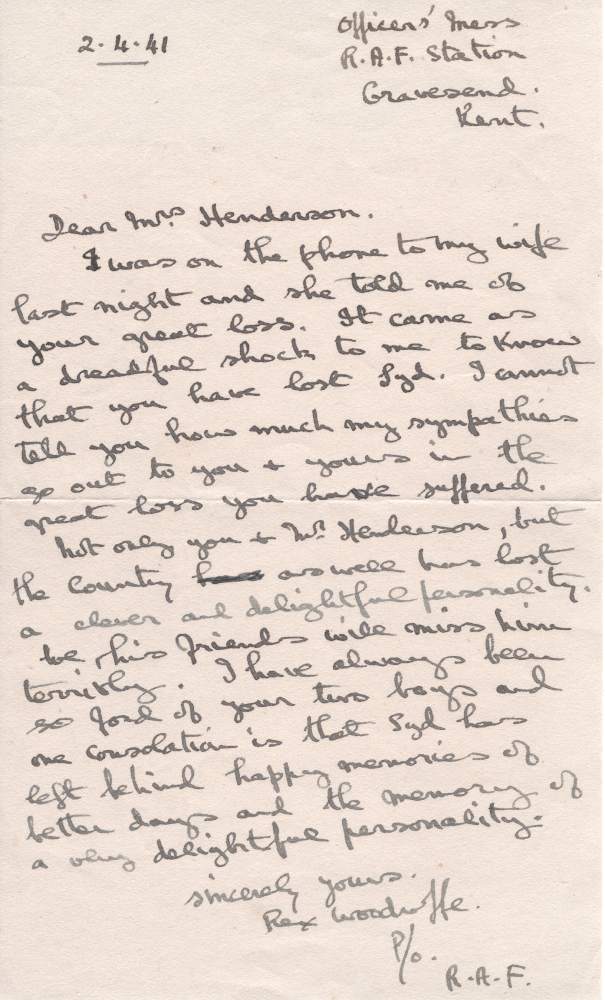 2.4.41
Officers' Mess
R.A.F. Station
Gravesend.
Kent.
Dear Mrs Henderson.
I was on the phone to my wife
last night and she told me of
your great loss. It came as
a dreadful shock to me to know
that you have lost Syd. I cannot
tell you how much my sympathies
go out to you + yours in the
great loss you have suffered.
Not only you + Mr Henderson, but
the country as well has lost
a clever and delightful personality.
We, his friends will miss him
terribly. I have always been
so fond of your two boys and
one consolation is that Syd has
left behind happy memories of
better days and the memory of
a very delightful personality.
sincerely yours.
Rex Woodruffe.
P/O.
R.A.F.